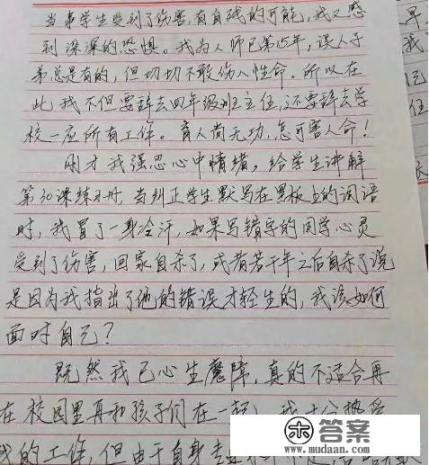 当事学生受到了伤害,有自残的可能,我又感
到深深的恐惧。我为人师已第15年,误人子
弟总是有的,但切切不敢伤人性命。所以在
此我不但要辞去四年级班主任,还要辞去学
校一应所有工作。育人尚无功,怎可害人命!
刚才我强忍心中情绪,给学生讲解
第30课练习册,当纠正学生默写在黑板上的词语
时,我冒了一身冷汗,如果写错字的同学心灵
受到了伤害,回家自杀了,或者若干年之后自杀了说
是因为我指出了他的错误才轻生的,我该如何
面对自己?
既然我已心生魔障,真的不适合再
在校园里再和孩子们在一起。我十分热爱
我的工作,但由于自身
答案
www.mudaan.com